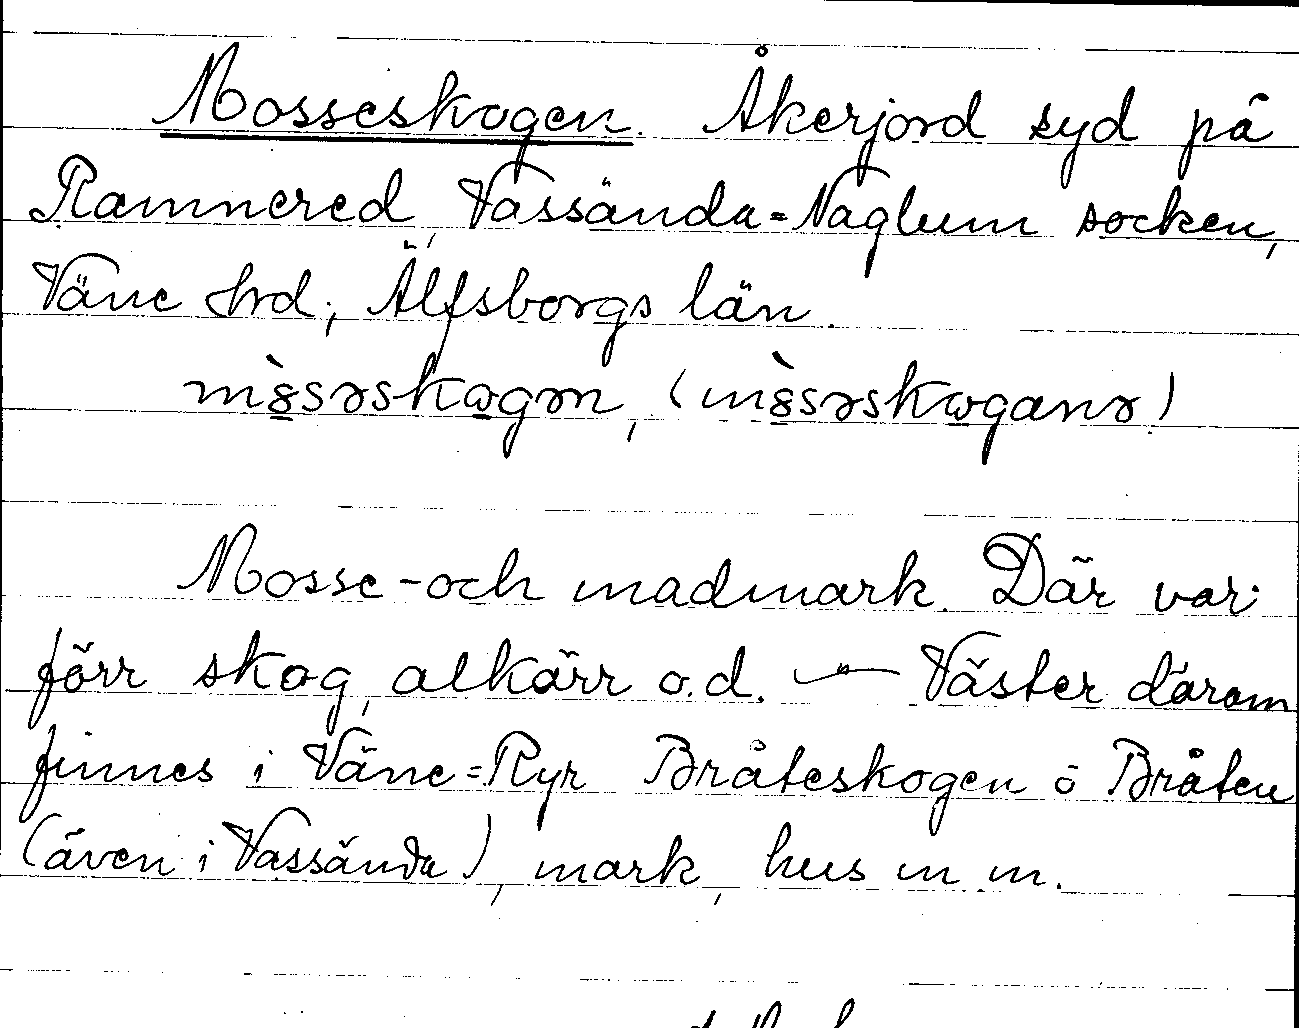 Mosseskogen. Åkerjord syd på
Ramnered, Vassända=Naglum socken,
Väne hrd; Älfsborgs län.
Mosse-och madmark. Där var
förr skog, alkärr o.d. — Väster därom
finnes i Väne=Ryr Bråteskogen o Bråten
(även i Vassända), mark, hus m.m.